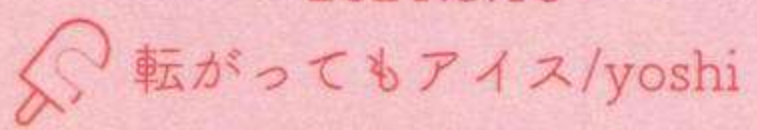 転がってもアイス/yoshi